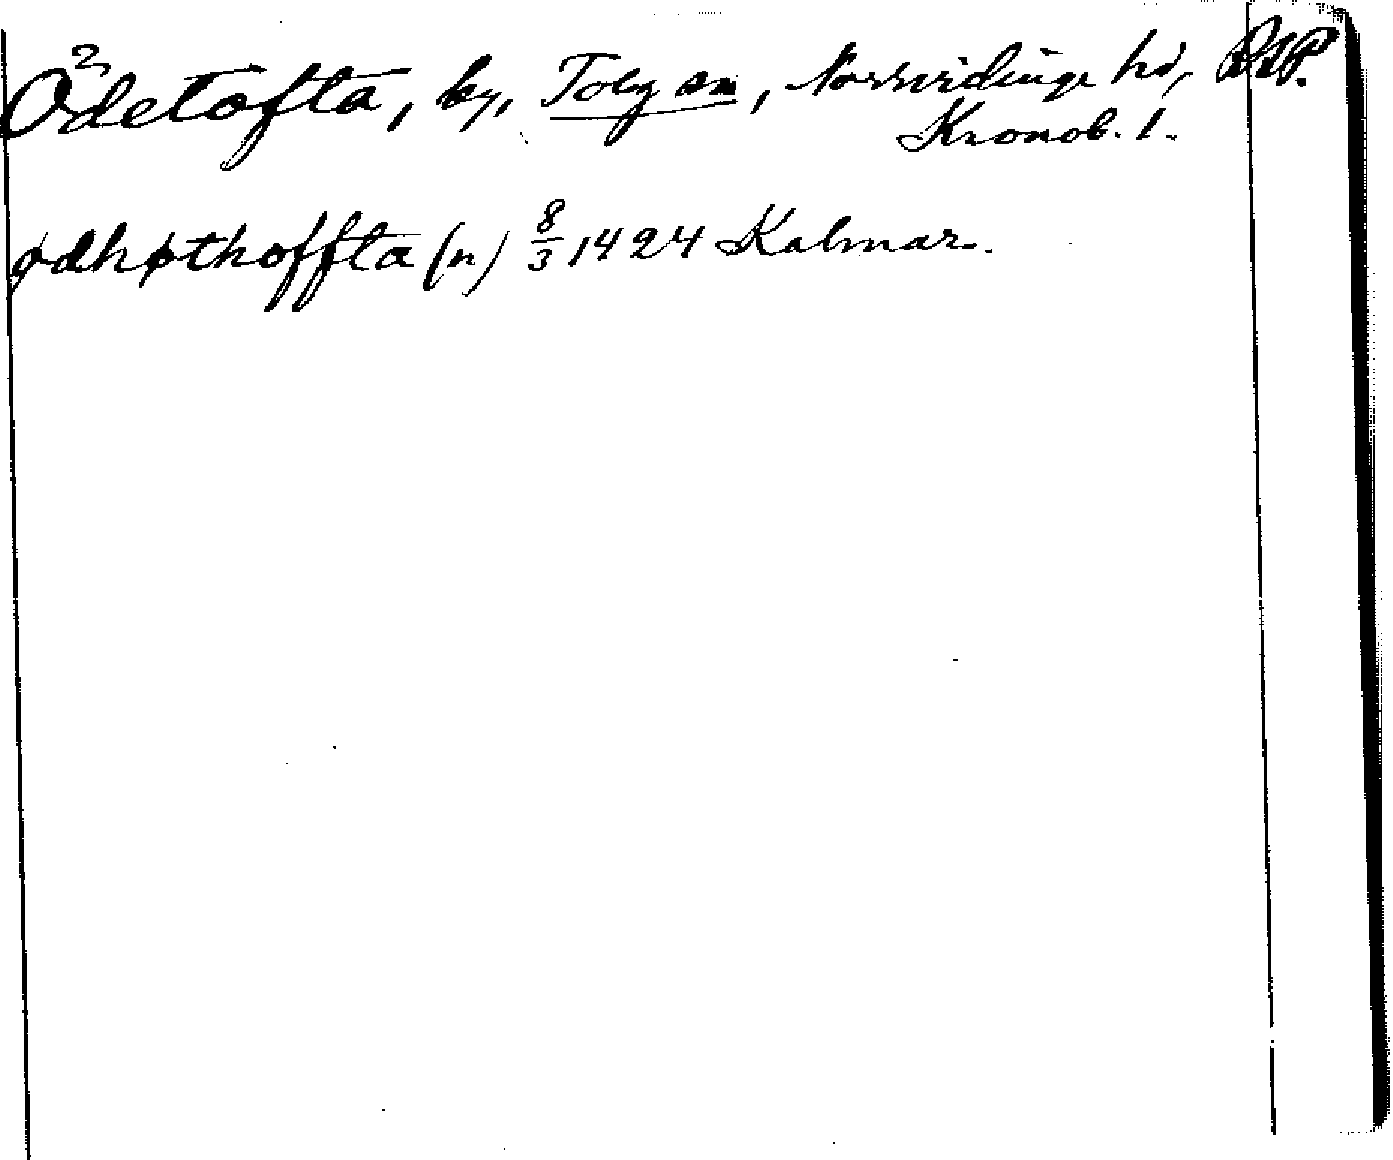 Ödetofta, by, Tolg sn, Norrvidinge hd, RAP.
Kronob. l.
ødhøthoffta (n) 8/3 1424 Kalmar.